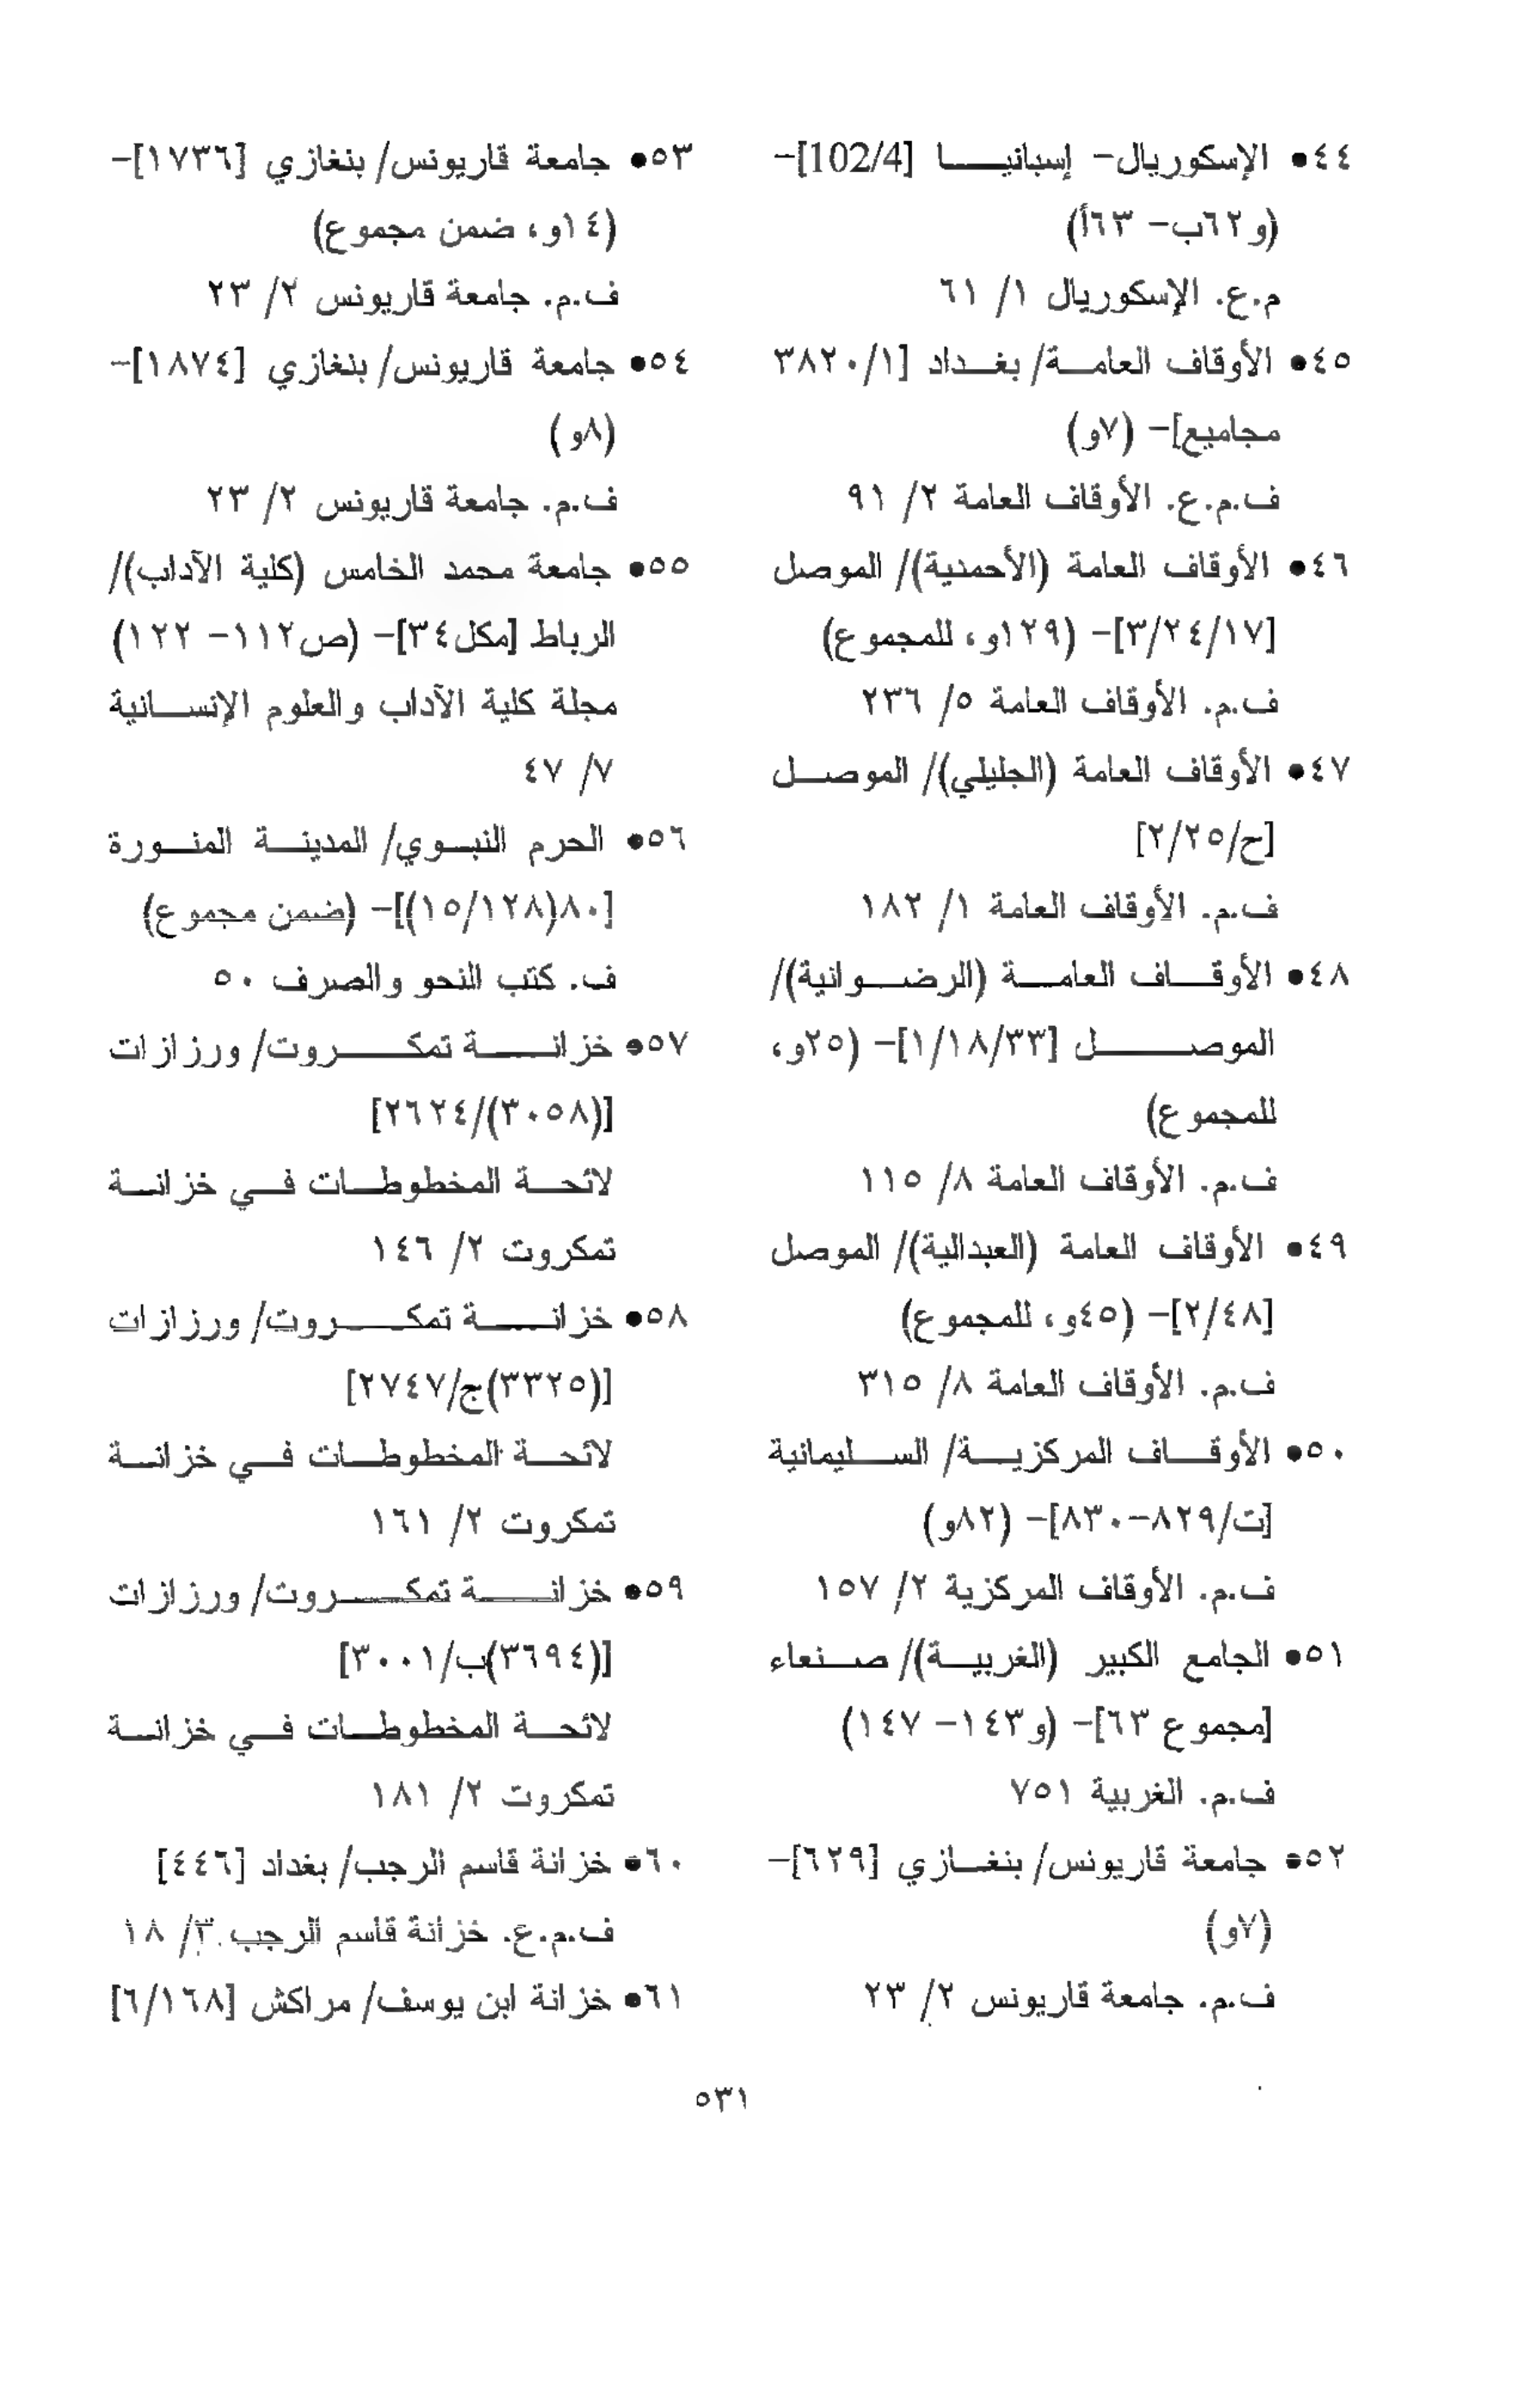 ٤٤• الإسكوريال- إسبانيا [102/4]-
(و٦٢ب- ٦٣أ)
م.ع. الإسكوريال ١/ ٦١
٤٥• الأوقاف العامة/ بغداد [٣٨٢٠/١
مجاميع]- (٧و)
ف.م.ع. الأوقاف العامة ٢/ ٩١
٤٦• الأوقاف العامة (الأحمدية)/ الموصل
[٣/٢٤/١٧]- (١٢٩و، للمجموع)
ف.م. الأوقاف العامة ٥/ ٢٣٦
٤٧• الأوقاف العامة (الجليلي)/ الموصل
[ح/٢/٢٥]
ف.م. الأوقاف العامة ١/ ١٨٢
٤٨• الأوقاف العامة (الرضوانية)/
الموصل [١/١٨/٣٣]- (٢٥و،
للمجموع)
ف.م. الأوقاف العامة ٨/ ١١٥
٤٩• الأوقاف العامة (العبدالية)/ الموصل
[٢/٤٨]- (٤٥و، للمجموع)
ف.م. الأوقاف العامة ٨/ ٣١٥
٥٠• الأوقاف المركزية/ السليمانية
[ت/٨٢٩-٨٣٠]- (٨٢و)
ف.م. الأوقاف المركزية ٢/ ١٥٧
٥١• الجامع الكبير (الغربية)/ صنعاء
[مجموع ٦٣]- (و١٤٣- ١٤٧)
ف.م. الغربية ٧٥١
٥٢• جامعة قاريونس/ بنغازي [٦٢٩]-
(٧و)
ف.م. جامعة قاريونس ٢/ ٢٣
٥٣• جامعة قاريونس/ بنغازي [١٧٣٦]-
(١٤و، ضمن مجموع)
ف.م. جامعة قاريونس ٢/ ٢٣
٥٤• جامعة قاريونس/ بنغازي [١٨٧٤]-
(٨و)
ف.م. جامعة قاريونس ٢/ ٢٣
٥٥• جامعة محمد الخامس (كلية الآداب)/
الرباط [مكل٣٤]- (ص١١٢- ١٢٢)
مجلة كلية الآداب والعلوم الإنسانية
٧/ ٤٧
٥٦• الحرم النبوي/ المدينة المنورة
[٨٠(١٥/١٢٨)]- (ضمن مجموع)
ف. كتب النحو والصرف ٥٠
٥٧• خزانة تمكروت/ ورزازات
[(٣٠٥٨)/٢٦٢٤]
لائحة المخطوطات في خزانة
تمكروت ٢/ ١٤٦
٥٨• خزانة تمكروت/ ورزازات
[(٣٣٢٥)ج/٢٧٤٧]
لائحة المخطوطات في خزانة
تمكروت ٢/ ١٦١
٥٩• خزانة تمكروت/ ورزازات
[(٣٦٩٤)ب/٣٠٠١]
لائحة المخطوطات في خزانة
تمكروت ٢/ ١٨١
٦٠• خزانة قاسم الرجب/ بغداد [٤٤٦]
ف.م.ع. خزانة قاسم الرجب ٣/ ١٨
٦١• خزانة ابن يوسف/ مراكش [٦/١٦٨]
٥٣١